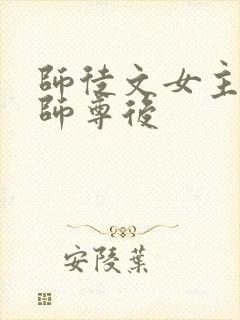 師徒文女主
師尊後
安陵葉